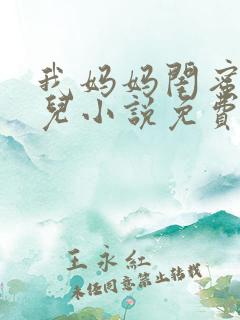 我妈妈閏蜜
兒小说免費
王永红
未经同意禁止转载